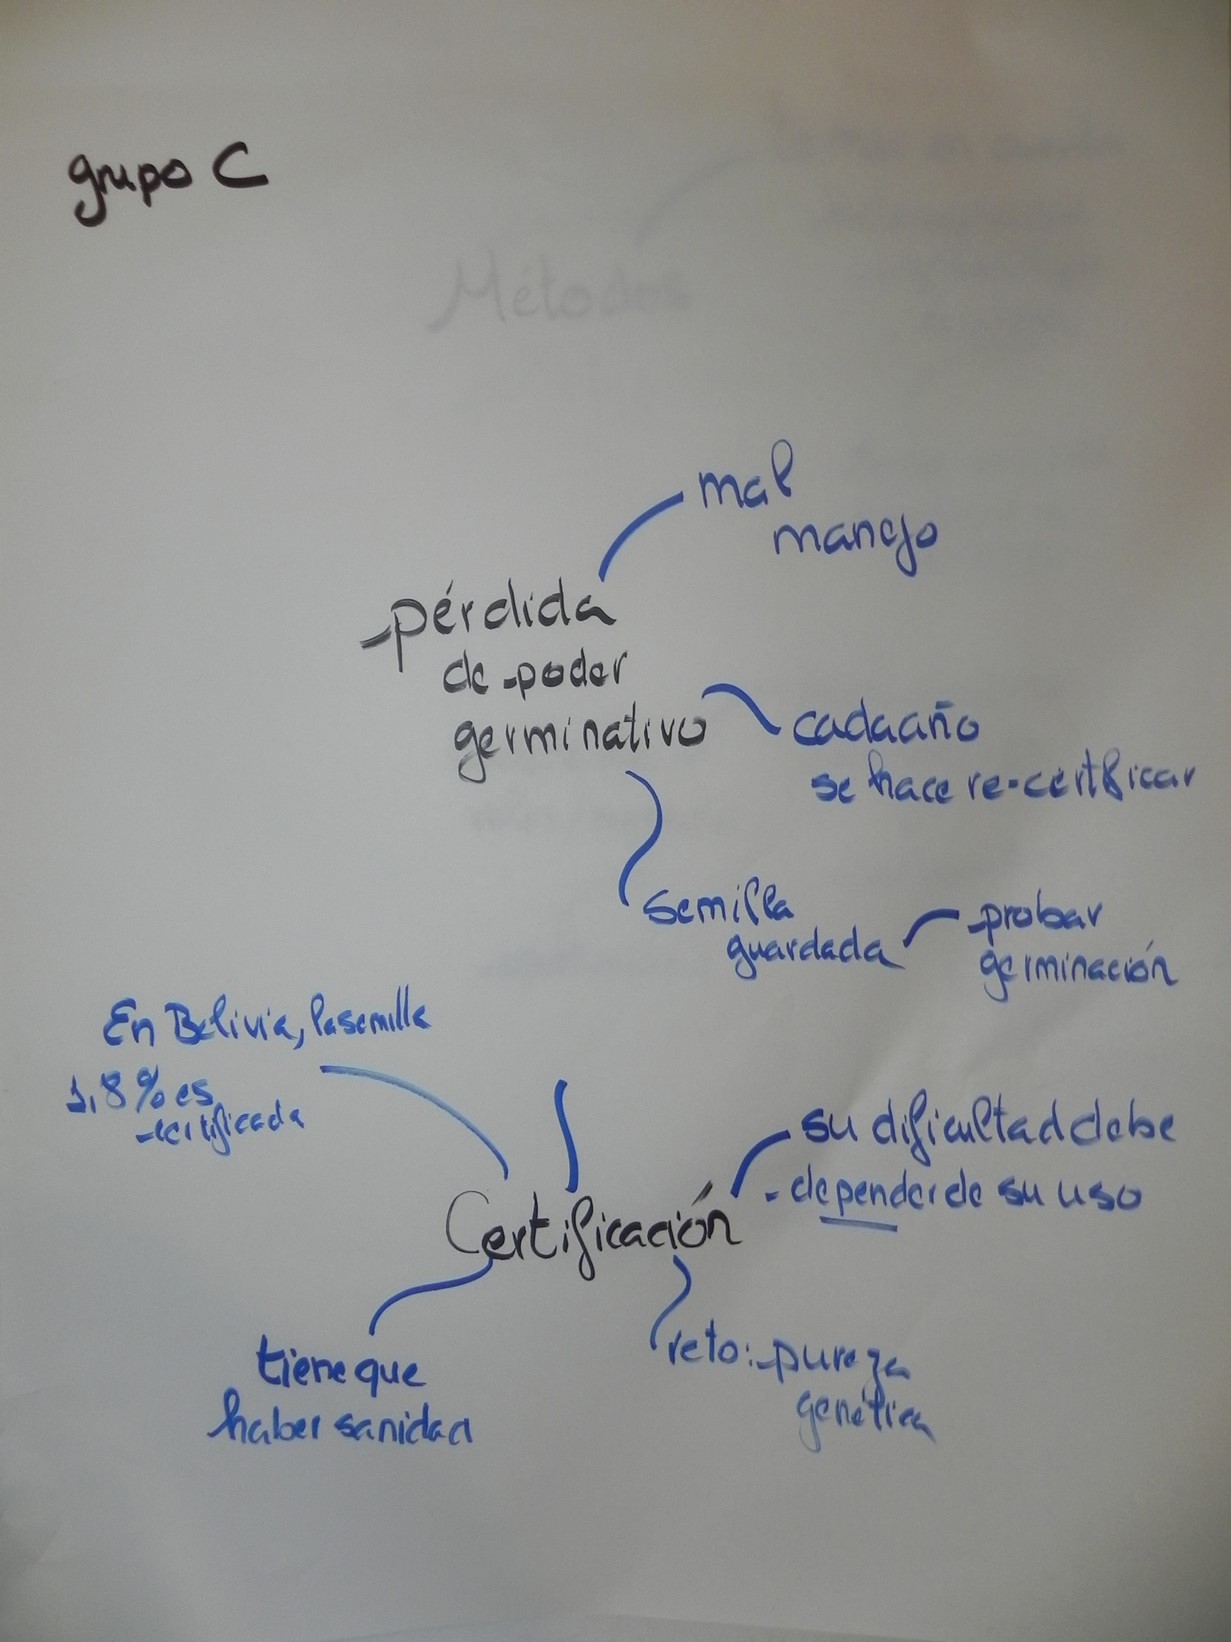 grupo C
Métodos
mal
manejo
pérdida
de poder
germinativo
cada año
se hace re-certificar
semilla
guardada
probar
germinación
En Bolivia, la semilla
1,8 % es
certificada
su dificultad debe
depender de su uso
Certificación
reto: pureza
genética
tiene que
haber sanidad